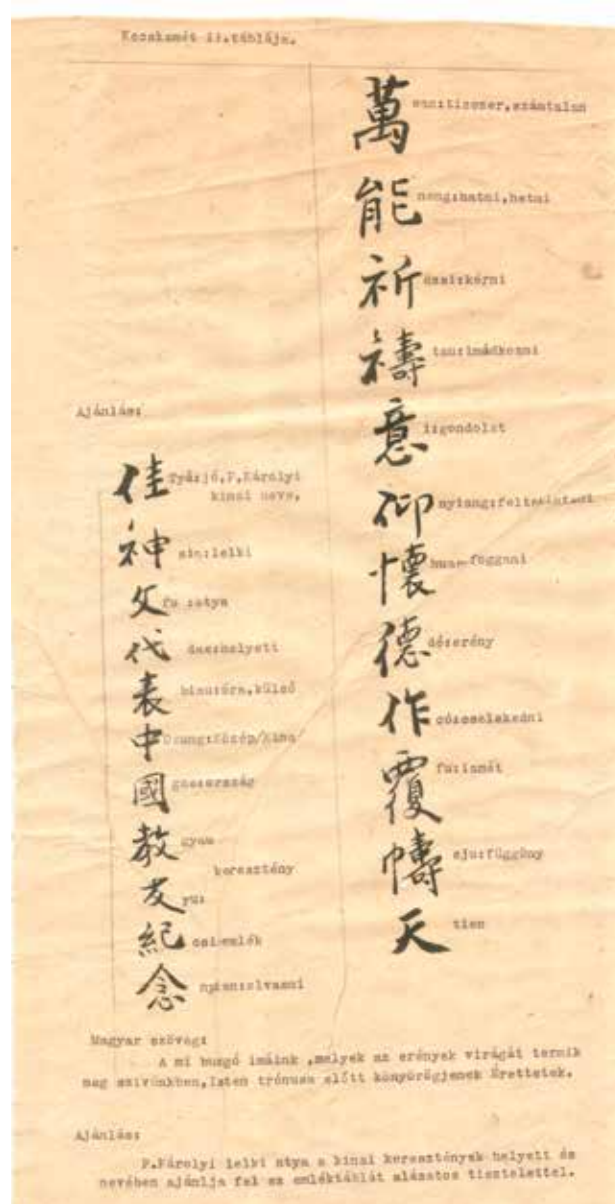 Kecskemét II.táblája.
萬 wan:tizezer,számtalan
能 neng:hatni,hetni
祈 kérni
禱 tau:imádkozni
意 i:gondolat
仰 nyiang:feltekinteni
懷 függeni
德 dé:erény
作 có:cselekedni
覆 fu:ismét
幬 függöny
天 tien
Ajánlás:
佳 Tyá:jó,P.Károlyi
kinai neve,
神 sin:lelki
父 fu :atya
代 helyett
表 biau:óra,külső
中 Dzung:Közép/Kina
國 ország
教 gyau
keresztény
友 yu:
紀 csi:emlék
念 nyien:olvasni
Magyar szöveg:
A mi buzgó imáink ,melyek az erények virágát termik
meg szivünkben,Isten trónusa előtt könyörögjenek Érettetek.
Ajánlás:
P.Károlyi lelki atya a kinai keresztények helyett és
nevében ajánlja fel ez emléktáblát alázatos tisztelettel.